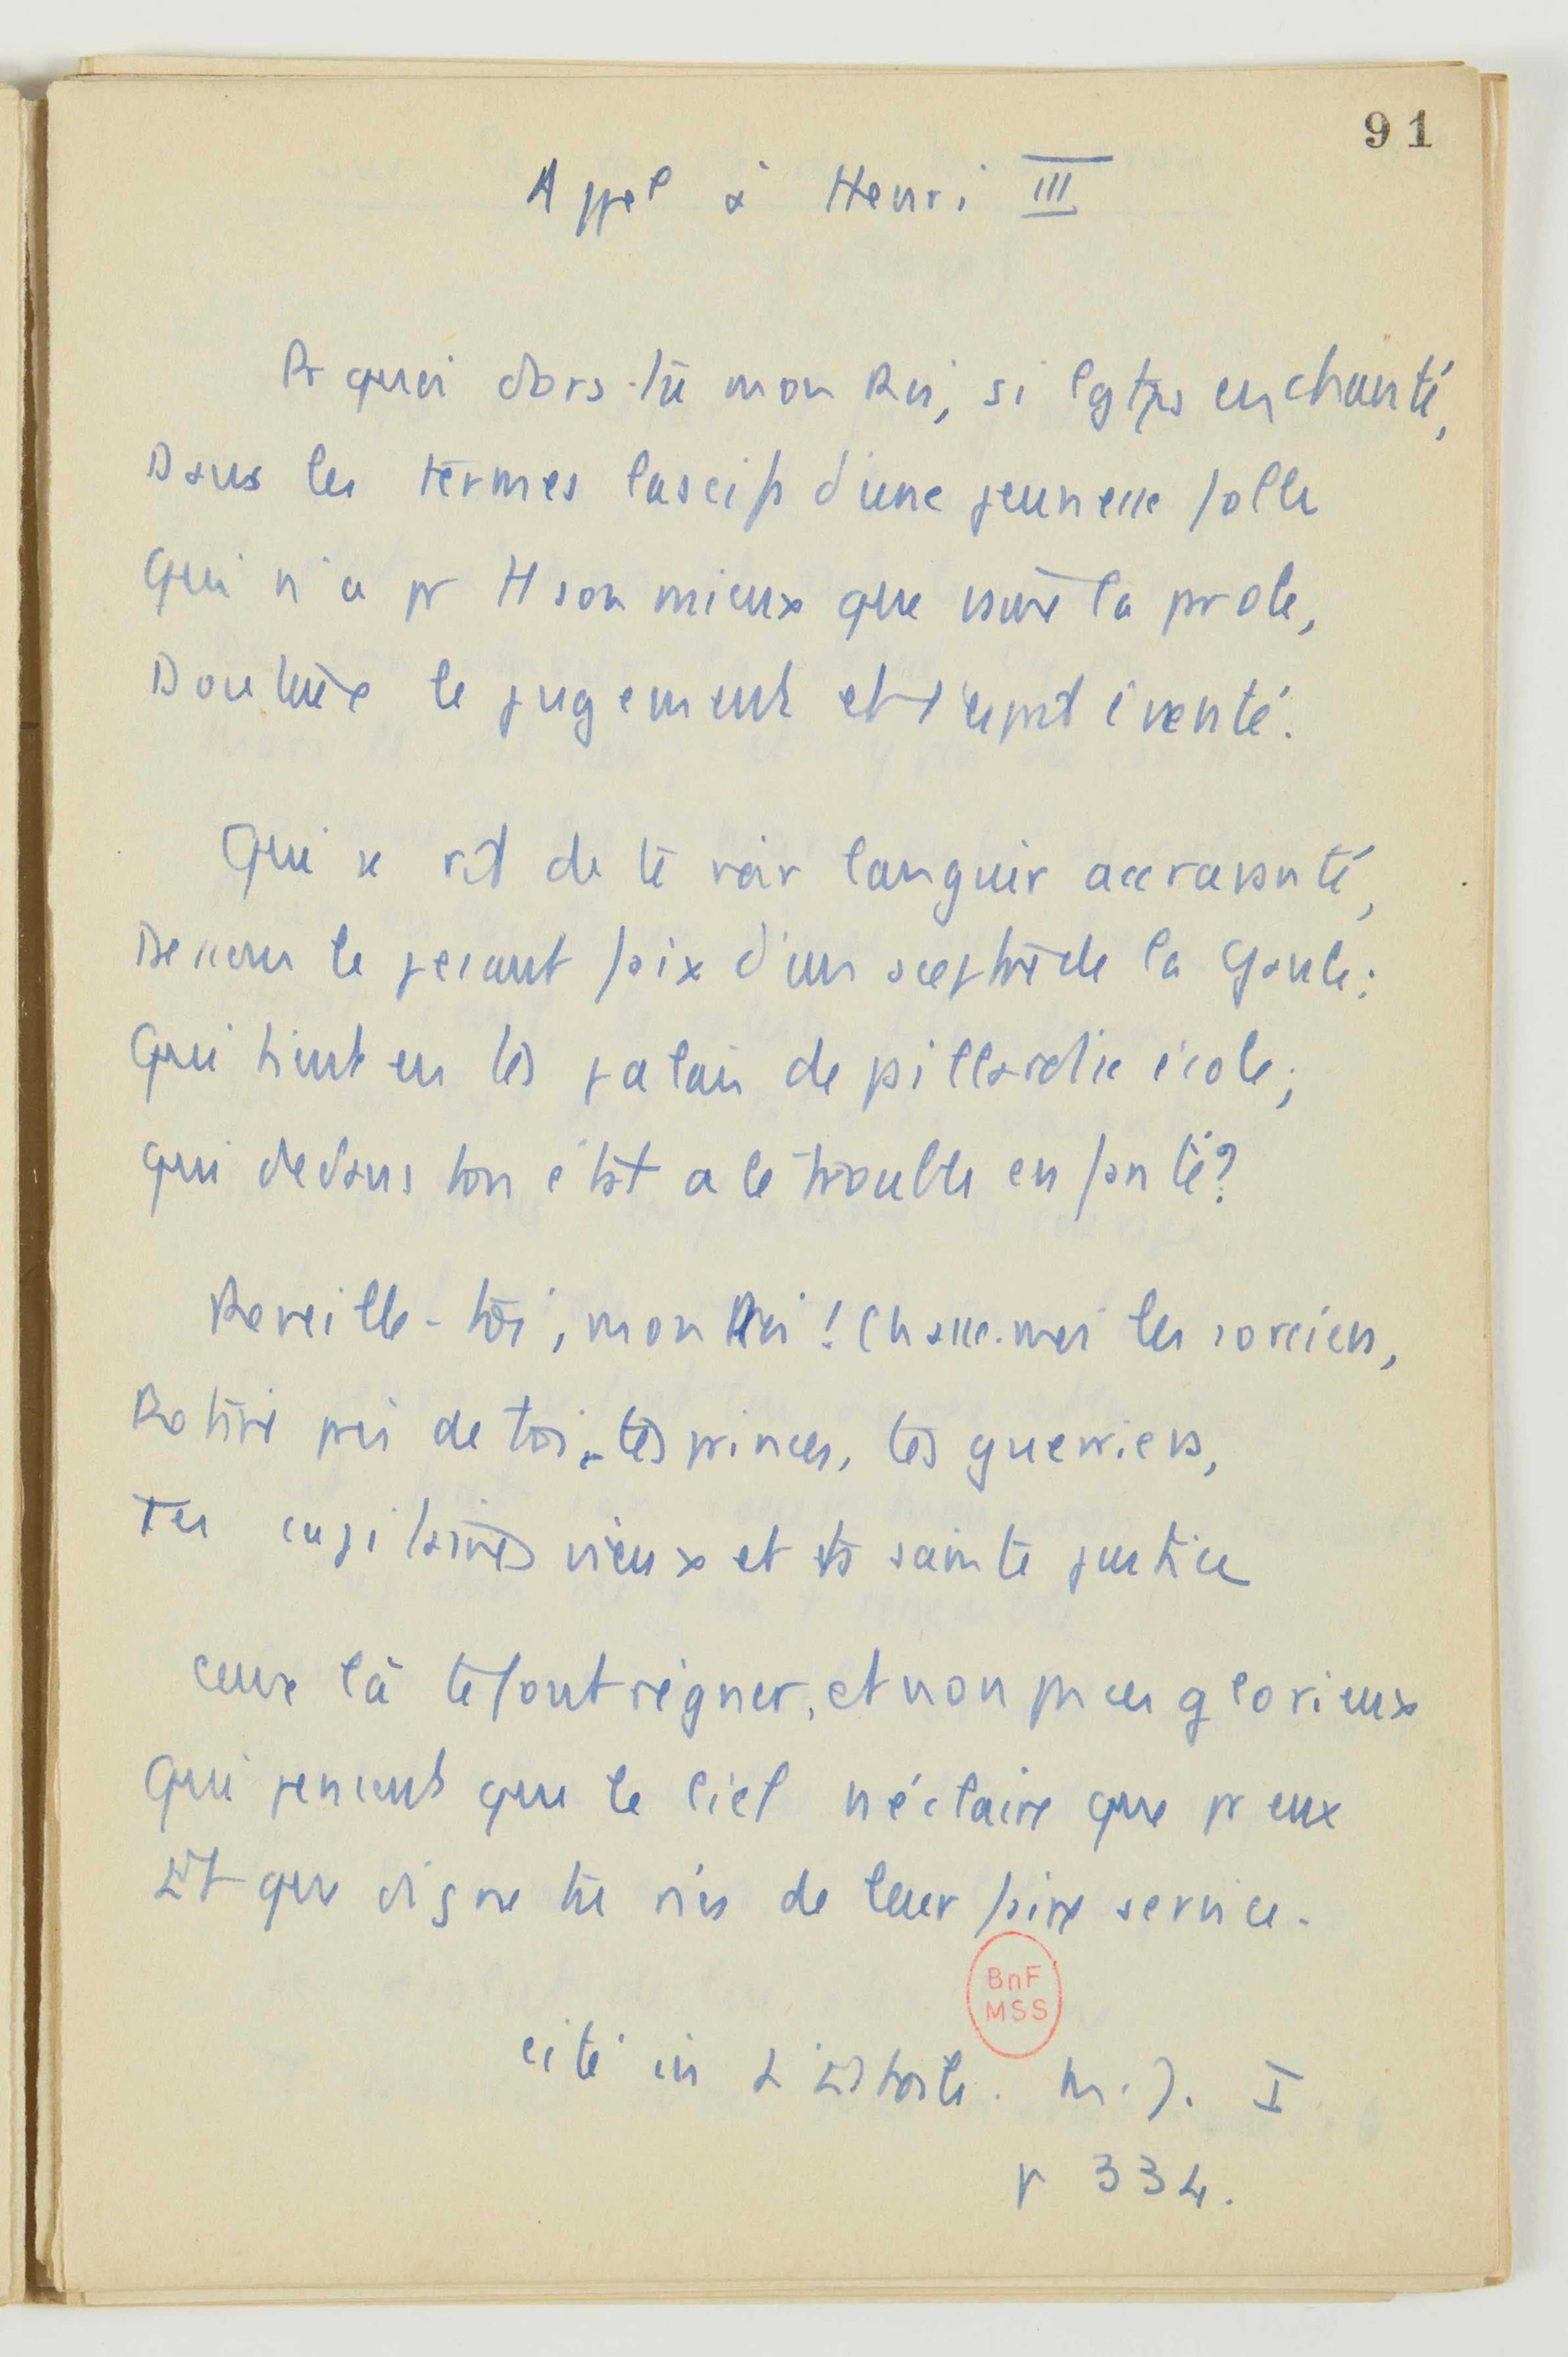 91
Appel à Henri III
Pr quoi dors-tu mon Roi, si lgtps enchanté,
Dans les termes lascifs d'une jeunesse folle
Qui n'a pr tt son mieux que vaine la parole,
Douteux le jugement et l'esprit éventé.
Qui se rit de te voir languir accravanté,
Dessous le pesant faix d'un sceptre de la Gaule;
Qui tient en tes palais de pillardie école;
qui dedans ton état a le trouble enfanté?
Reveille-toi, mon Roi! Chasse-moi les sorciers,
Retire près de toi tes princes, tes guerriers,
Tes capitaines vieux et ta sainte justice
ceux là te font régner, et non pas ces glorieux
Qui pensent que le Ciel n'éclaire que pr eux
Et que digne tu n'es de leur faire service.
BnF
MSS
cité in L'Estoile. M.J. I
p 334.